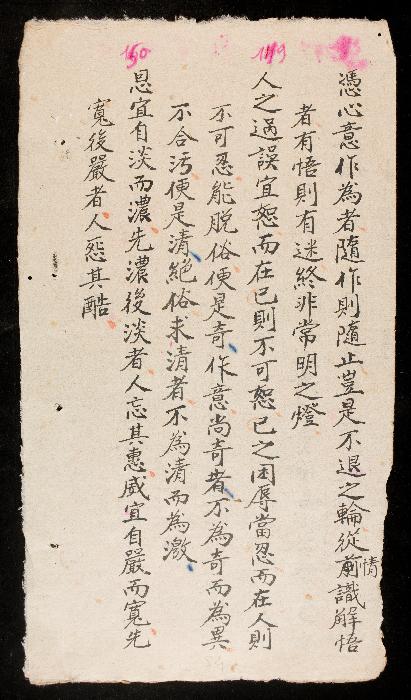 憑心意作為者隨作則隨止豈是不退之輪從前識解悟
情
者有悟則有迷終非常明之燈
149
人之過誤宜恕而在已則不可恕已之困辱當忍而在人則
不可忍能脫俗便是奇作意尚奇者不為奇而為異
不合污便是清絕俗求清者不為清而為激
150
恩宜自淡而濃先濃後淡者人忘其惠威宜自嚴而寬先
寬後嚴者人怨其酷